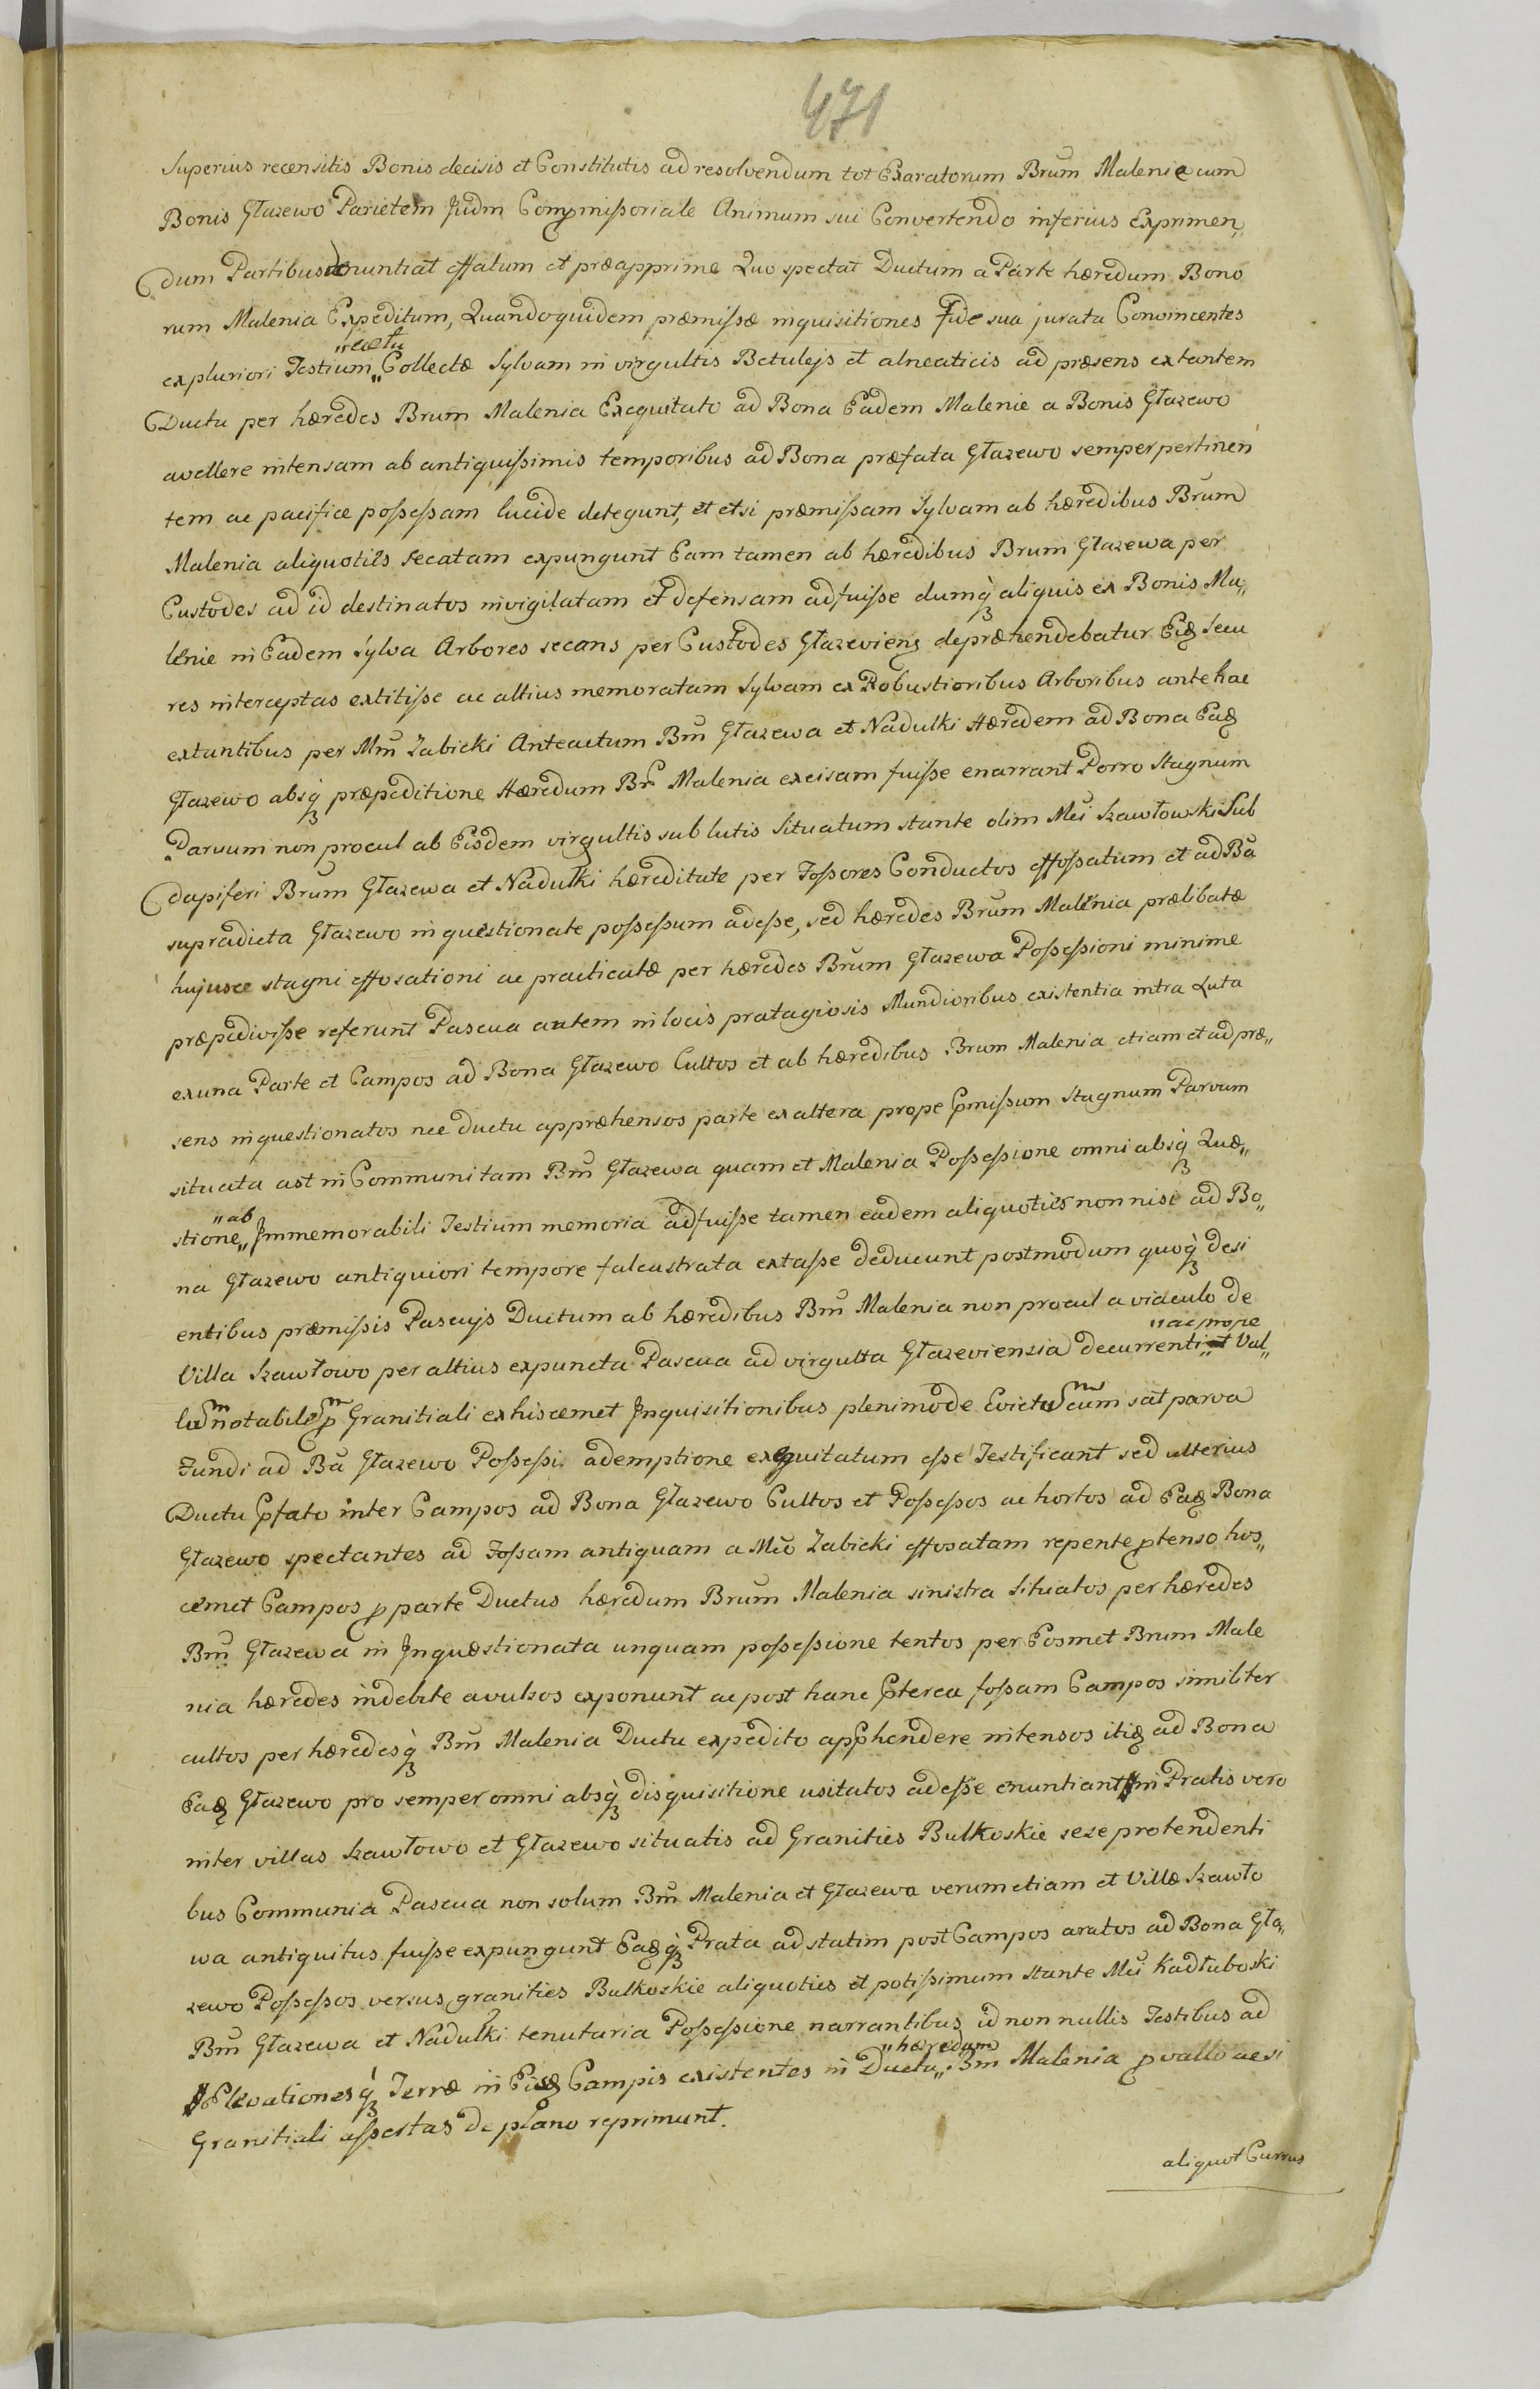 471
Superius recensitis Bonis decisis et Constitutis ad resolvendum tot Exaratorum Brum Malenie cum
Bonis Głazewo Parietem Judm Compmißoriale Animum sui Convertendo inferius Exprimen„
dum Partibus denuntiat effatum et præapprime Quo spectat Ductum a Parte hæredum Bono
rum Malenia Expeditum, Quandoquidem præmißæ inquisitiones fide sua jurata Convincentes
ex pluriori Testium „cætu Collectæ Sylvam in virgultis Betulejs et alneaticis ad præsens extantem
Ductu per hæredes Brum Malenia Exequitato ad Bona Eadem Malenie a Bonis Głazewo
avellere intensam ab antiquißimis temporibus ad Bona præfata Głazewo semper pertinen
tem ac pacifice poßeßam lucide detegunt, et etsi præmißam Sylvam ab hæredibus Brum
Malenia aliquoties secatam expungunt Eam tamen ab hæredibus Brum Głazewa per
Custodes ad id destinatos invigilatam et defensam adfuiße dumq́ꝫ aliquis ex Bonis Ma„
lenie in Eadem Sylva Arbores secans per Custodes Głazeviens depræhendebatur Eis Secu
res interceptas extitiße ac altius memoratam Sylvam ex Robustioribus Arboribus antehac
extantibus per Mm Zabicki Anteactum Bm Głazewa et Nadulki Hæredem ad Bona Ead
Głazewo absq́ꝫ præpeditione Hæredum Br Malenia excisam fuiße enarrant Porro Stagnum
Parvum non procul ab Eisdem virgultis sub lutis Situatum stante olim Mci Szawłowski Sub
dapiferi Brum Głazewa et Nadulki hæreditate per Foßores Conductos effoßatum et ad Ba
supradicta Głazewo in questionate poßeßum adeße, sed hæredes Brum Malenia prælibatæ
hujusce stagni effosationi ac practicatæ per hæredes Brum Głazewa Poßeßioni minime
præpediviße referunt Pascua autem in locis pratagiosis Mundioribus existentia intra Luta
ex una Parte et Campos ad Bona Głazewo Cultos et ab hæredibus Brum Malenia etiam et ad præ„
sens inquestionatos nec ductu appræhensos parte ex altera prope pmißum Stagnum Parvum
situata ast in Communi tam Bm Głazewa quam et Malenia Poßeßione omni absq́ꝫ Quæ„
stione „ab Immemorabili Testium memoria adfuiße tamen eadem aliquoties non nisi ad Bo„
na Głazewo antiquiori tempore falcastrata extaße deducunt postmodum quoq́ꝫ desi
entibus præmißis Pascujs Ductum ab hæredibus Bm Malenia non procul a viaculo de
Villa Szawłowo per altius expuncta Pascua ad virgulta Głazeviensia decurrenti „ac prope Val„
lum notabilem p Granitiali ex hiscemet Inquisitionibus plenimode Evictum cum sat parva
Fundi ad Ba Głazewo Poßeßi ademptione exequitatum eße Testificant sed ulterius
Ductu pfato inter Campos ad Bona Głazewo Cultos et Poßeßos ac hortos ad Ead Bona
Głazewo spectantes ad Foßam antiquam a Mco Zabicki effosatam repente ptenso hos„
cemet Campos p parte Ductus hæredum Brum Malenia sinistra Situatos per hæredes
Bm Głazewa in Inquæstionata unquam poßeßione tentos per Eosmet Brum Male
nia hæredes indebite avulsos exponunt ac post hanc pterea foßam Campos similiter
cultos per hæredesq́ꝫ Bm Malenia Ductu expedito apphendere intensos itid ad Bona
Ead Głazewo pro semper omni absq́ꝫ disquisitione usitatos adeße enuntiant in Pratis vero
inter villas Szawłowo et Głazewo situatis ad Granities Bulkoskie sese protendenti
bus Communia Pascua non solum Bm Malenia et Głazewa verum etiam et Villæ Szawło
wa antiquitus fuiße expungunt Eadq́ꝫ Prata ad statim post Campos aratos ad Bona Gła„
zewo Poßeßos versus granities Bulkoskie aliquoties et potißimum stante Mci Kadłuboski
Bm Głazewa et Nadulki tenutaria Poßeßione narrantibus id non nullis Testibus ad
Elevationesq́ꝫ Terræ in Eisd Campis existentes in Ductu „hæredum Bm Malenia p vallo acsi
Granitiali aßertas de plano reprimunt.
aliquot Currus